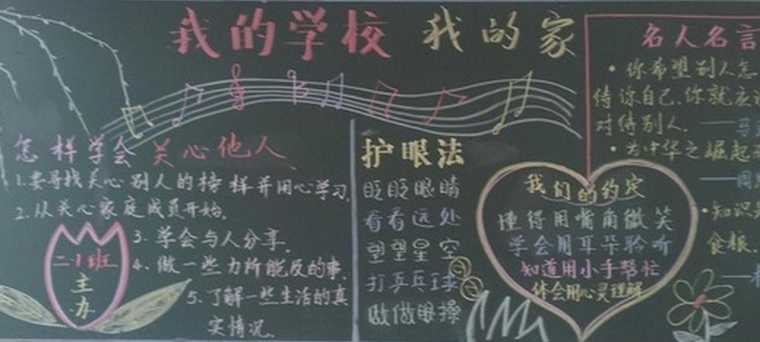 我的学校 我的家
怎样学会 关心他人
1.要寻找关心别人的榜样并用心学习.
2.从关心家庭成员开始.
3.学会与人分享.
4.做一些力所能及的事.
5.了解一些生活的真
实情况.
二·1班
主
办
护眼法
眨眨眼睛
看看远处
望望星空
打乒乓球
做做眼操
我们的约定
懂得用嘴角微笑
学会用耳朵聆听
知道用小手帮忙
体会用心灵理解
名人名言
·你希望别人怎
待你自己,你就应
对待别人.
·为中华之崛起
·知识
食粮.